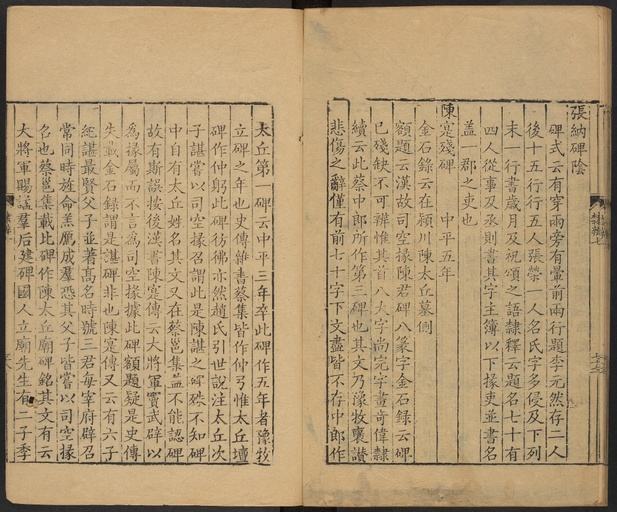 張納碑陰
碑式云有穿兩旁有暈前兩行題李元然存二人
後十五行行五人張榮一人名氏字多侵及下列
末一行書歲月及祝頌之語隸釋云題名七十有
四人從事及丞則書其字主簿以下掾吏並書名
蓋一郡之吏也
陳寔殘碑 中平五年
金石錄云在潁川陳太丘墓側
額題云漢故司空掾陳君碑八篆字金石錄云碑
已殘缺不可辨惟其首八大字尚完字畫奇偉隸
續云此蔡中郎所作第三碑也其文乃豫牧襃讃
悲傷之辭僅有前七十字下文盡皆不存中郎作
太丘第一碑云中平三年卒此碑作五年者豫牧
立碑之年也史傳雜書蔡集皆作仲弓惟太丘壇
碑作仲躬此碑彷彿亦然趙氏引世說注太丘次
子諶嘗以司空掾召謂此是陳諶之碑殊不知碑
中自有太丘姓名其文又在蔡邕集蓋不能認碑
故有斯誤按後漢書陳寔傳云大將軍竇武辟以
為掾屬而不言為司空掾據此碑額題疑是史傳
失載金石錄謂是諶碑非也陳寔傳又云有六子
紀諶最賢父子並著髙名時號三君每宰府辟召
常同時旌命羔鴈成羣恐其父子皆嘗以司空掾
名也蔡邕集載此碑作陳太丘廟碑銘其文有云
大將軍賜謚羣后建碑國人立廟先生有二子季